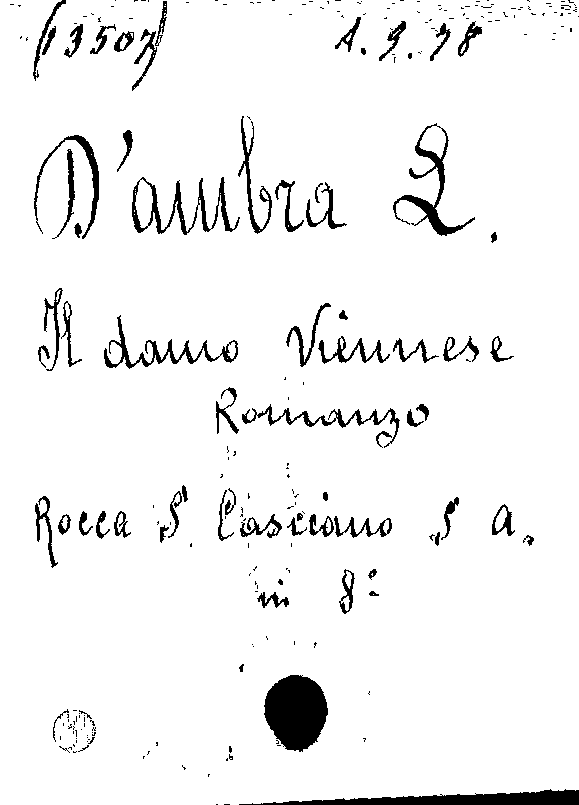 (13507) 1.9.78
D'ambra L.
Il damo Viennese
Romanzo
Rocca S. Casciano S a.
in 8º